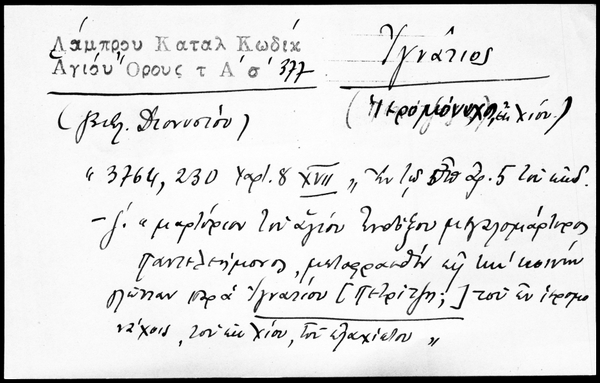 Λάμπρου Καταλ Κωδίκ
Αγίου Όρους τ Α΄ σ΄ 377
Ἰγνάτιος
(βιβλ. Διονυσίου)
(ἱερομόναχος, ἐκ Χίου.)
" 3764, 230 Χαρτ. 8 XVII " Ἐν τῷ ὑπ' ἀρ. 5 τοῦ κώδ.
— " μαρτύριον τοῦ ἁγίου ἐνδόξου μεγαλομάρτυρος
Παντελεήμονος, μεταφρασθὲν εἰς τὴν κοινὴν
γλῶτταν παρὰ Ἰγνατίου [Πετρίτζη;] τοῦ ἐν ἱερομο
νάχοις, τοῦ ἐκ Χίου, τοῦ ἐλαχίστου "